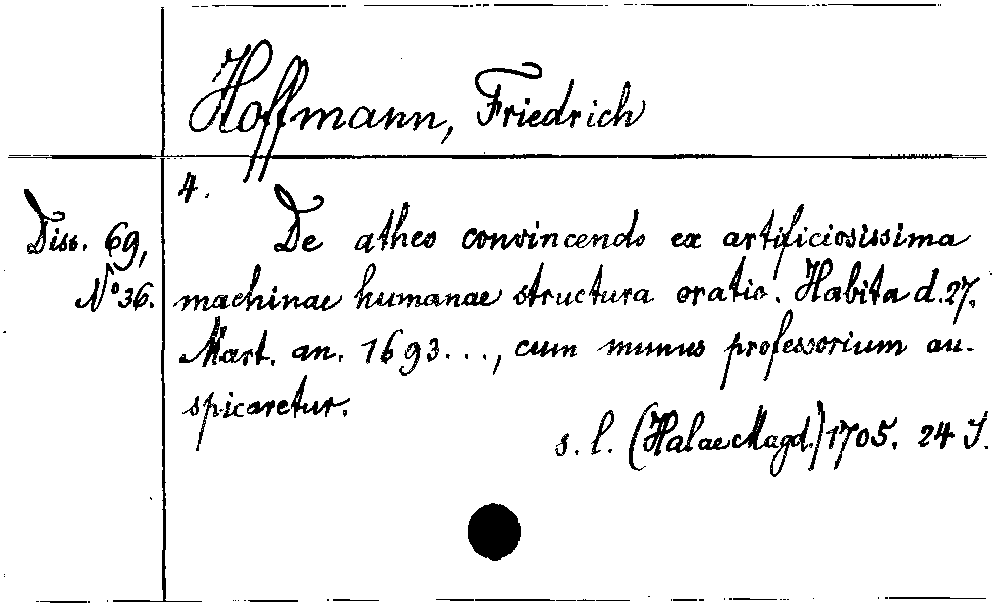 Hoffmann, Friedrich
4.
Diss. 69,
N° 36.
De atheo convincendo ex artificiosissima
machinae humanae structura oratio. Habita d. 27.
Mart. an. 1693..., cum munus professorium au-
spicaretur.
s. l. (Halae Magd.) 1705. 24 S.